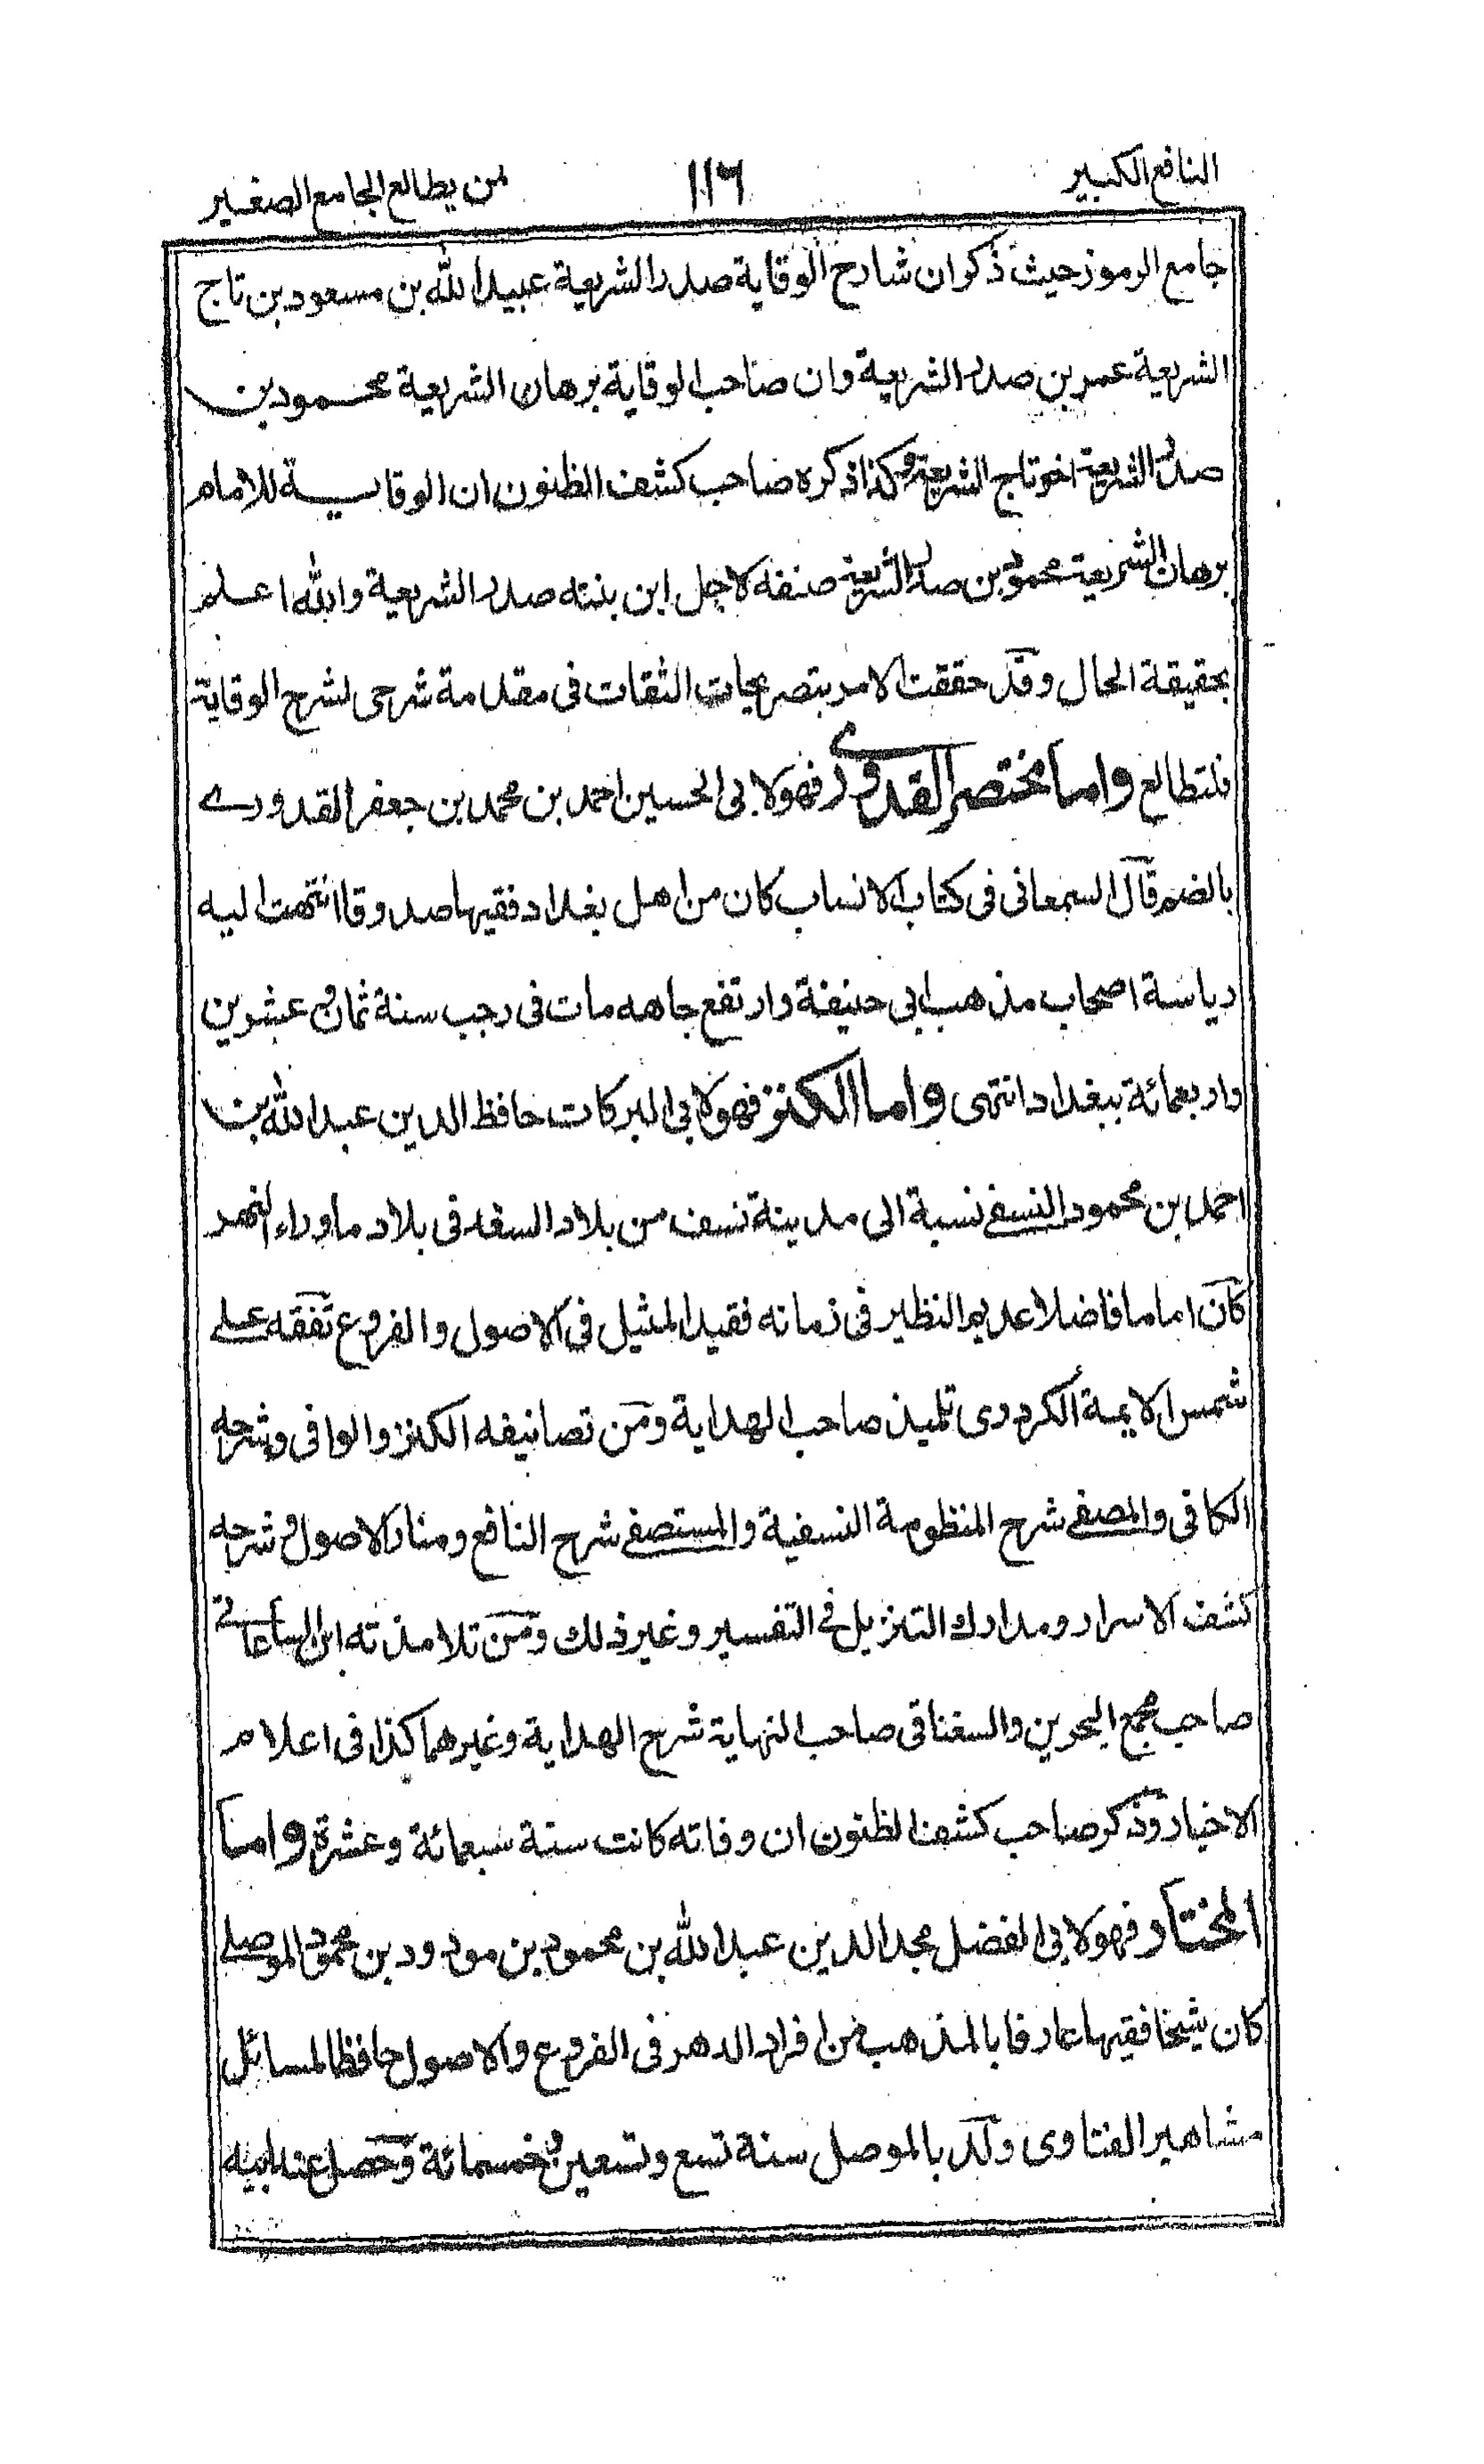 النافع الكبير
١١٦
لمن يطالع الجامع الصغير
جامع الرموز حيث ذكر ان شارح الوقاية صدر الشريعة عبيد الله بن مسعود بن تاج
الشريعة عمر بن صدر الشريعة وان صاحب الوقاية برهان الشريعة محمود بن
صدر الشريعة اخو تاج الشريعة وكذا ذكره صاحب كشف الظنون ان الوقاية للامام
برهان الشريعة محمود بن صدر الشريعة صنفه لاجل ابن بنته صدر الشريعة والله اعلم
بحقيقة الحال وقد حققت الامر بتصريحات الثقات فى مقدمة شرحى لشرح الوقاية
فلتطالع واما مختصر القدورى فهو لابى الحسين احمد بن محمد بن جعفر القدورے
بالضم قال السمعانى فى كتاب الانساب كان من اهل بغداد فقيها صدوقا انتهت اليه
رياسة اصحاب مذهب ابى حنيفة وارتفع جاهه مات فى رجب سنة ثمان وعشرين
واربعمائة ببغداد انتهى واما الكنز فهو لابى البركات حافظ الدين عبد الله بن
احمد بن محمود النسفے نسبة الى مدينة نسف من بلاد السغد فى بلاد ماوراء النهر
كان اماما فاضلا عديم النظير فى زمانه فقيد المثيل فى الاصول والفروع تفقه علے
شمس الايمة الكردرى تلميذ صاحب الهداية ومن تصانيفه الكنز والوافى وشرحه
الكافى والمصفے شرح المنظومة النسفية والمستصفے شرح النافع ومنار الاصول وشرحه
كشف الاسرار ومدارك التنزيل فے التفسير وغير ذلك ومن تلامذته ابن الساعاتے
صاحب مجمع البحرين والسغناقى صاحب النهاية شرح الهداية وغيرهما كذا فى اعلام
الاخيار وذكر صاحب كشف الظنون ان وفاته كانت سنة سبعمائة وعشرة واما
المختار فهو لابى الفضل مجد الدين عبد الله بن محمود بن مودود بن محمود الموصلے
كان شيخا فقيها عارفا بالمذهب من افراد الدهر فى الفروع والاصول حافظا لمسائل
مشاهير الفتاوى ولد بالموصل سنة تسع وتسعين وخمسمائة وحصل عند ابيه